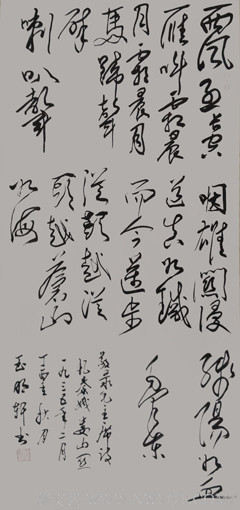 西風烈長空
雁叫霜晨
月霜晨月
馬蹄聲
碎
喇叭聲
咽雄關漫
道真如鐵
而今邁步
從頭越從
頭越蒼山
如海
殘陽如血
毛澤東
敬录毛主席詩
忆秦娥娄山关
一九三五年二月
丁酉年秋月
玉明軒书